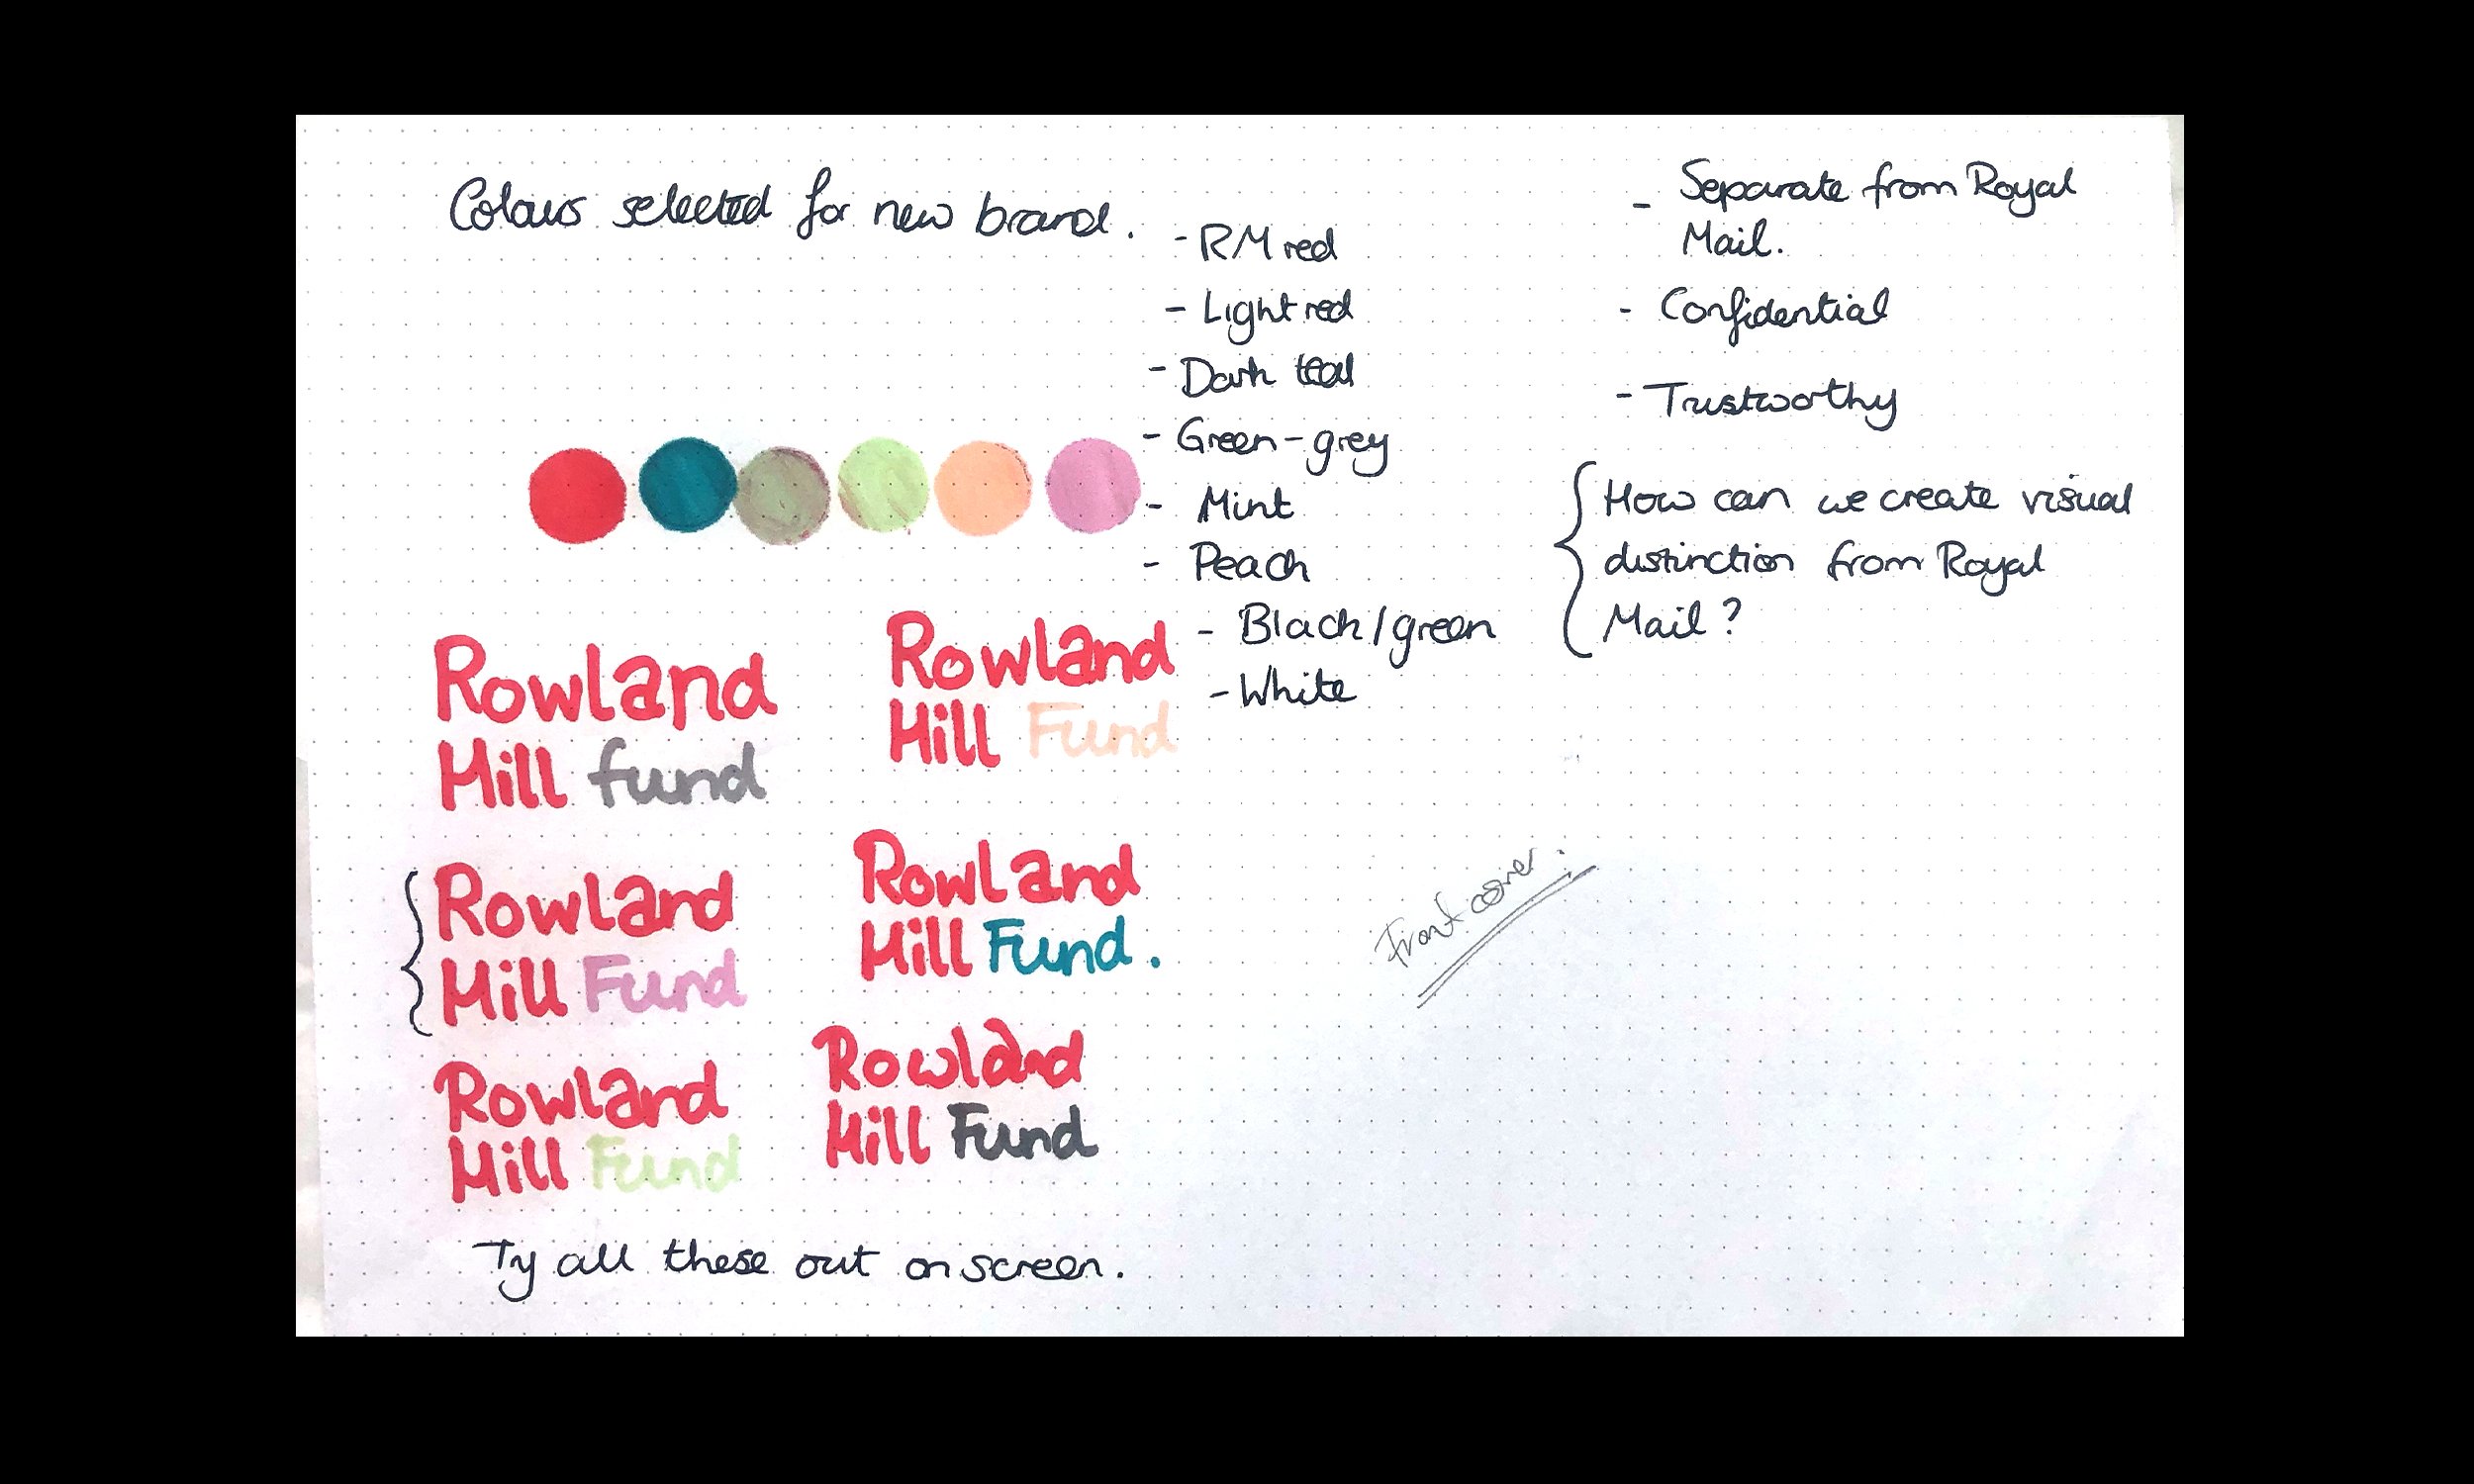 Colours selected for new brand.
- RM red
- Light red
- Dark teal
- Green-grey
- Mint
- Peach
- Black/green
- White
- Separate from Royal
Mail.
- Confidential
- Trustworthy
How can we create visual
distinction from Royal
Mail?
Rowland
Hill fund
Rowland
Hill Fund
Rowland
Hill Fund
Rowland
Hill Fund.
Rowland
Hill Fund
Rowland
Hill Fund
Front cover.
Try all these out on screen.